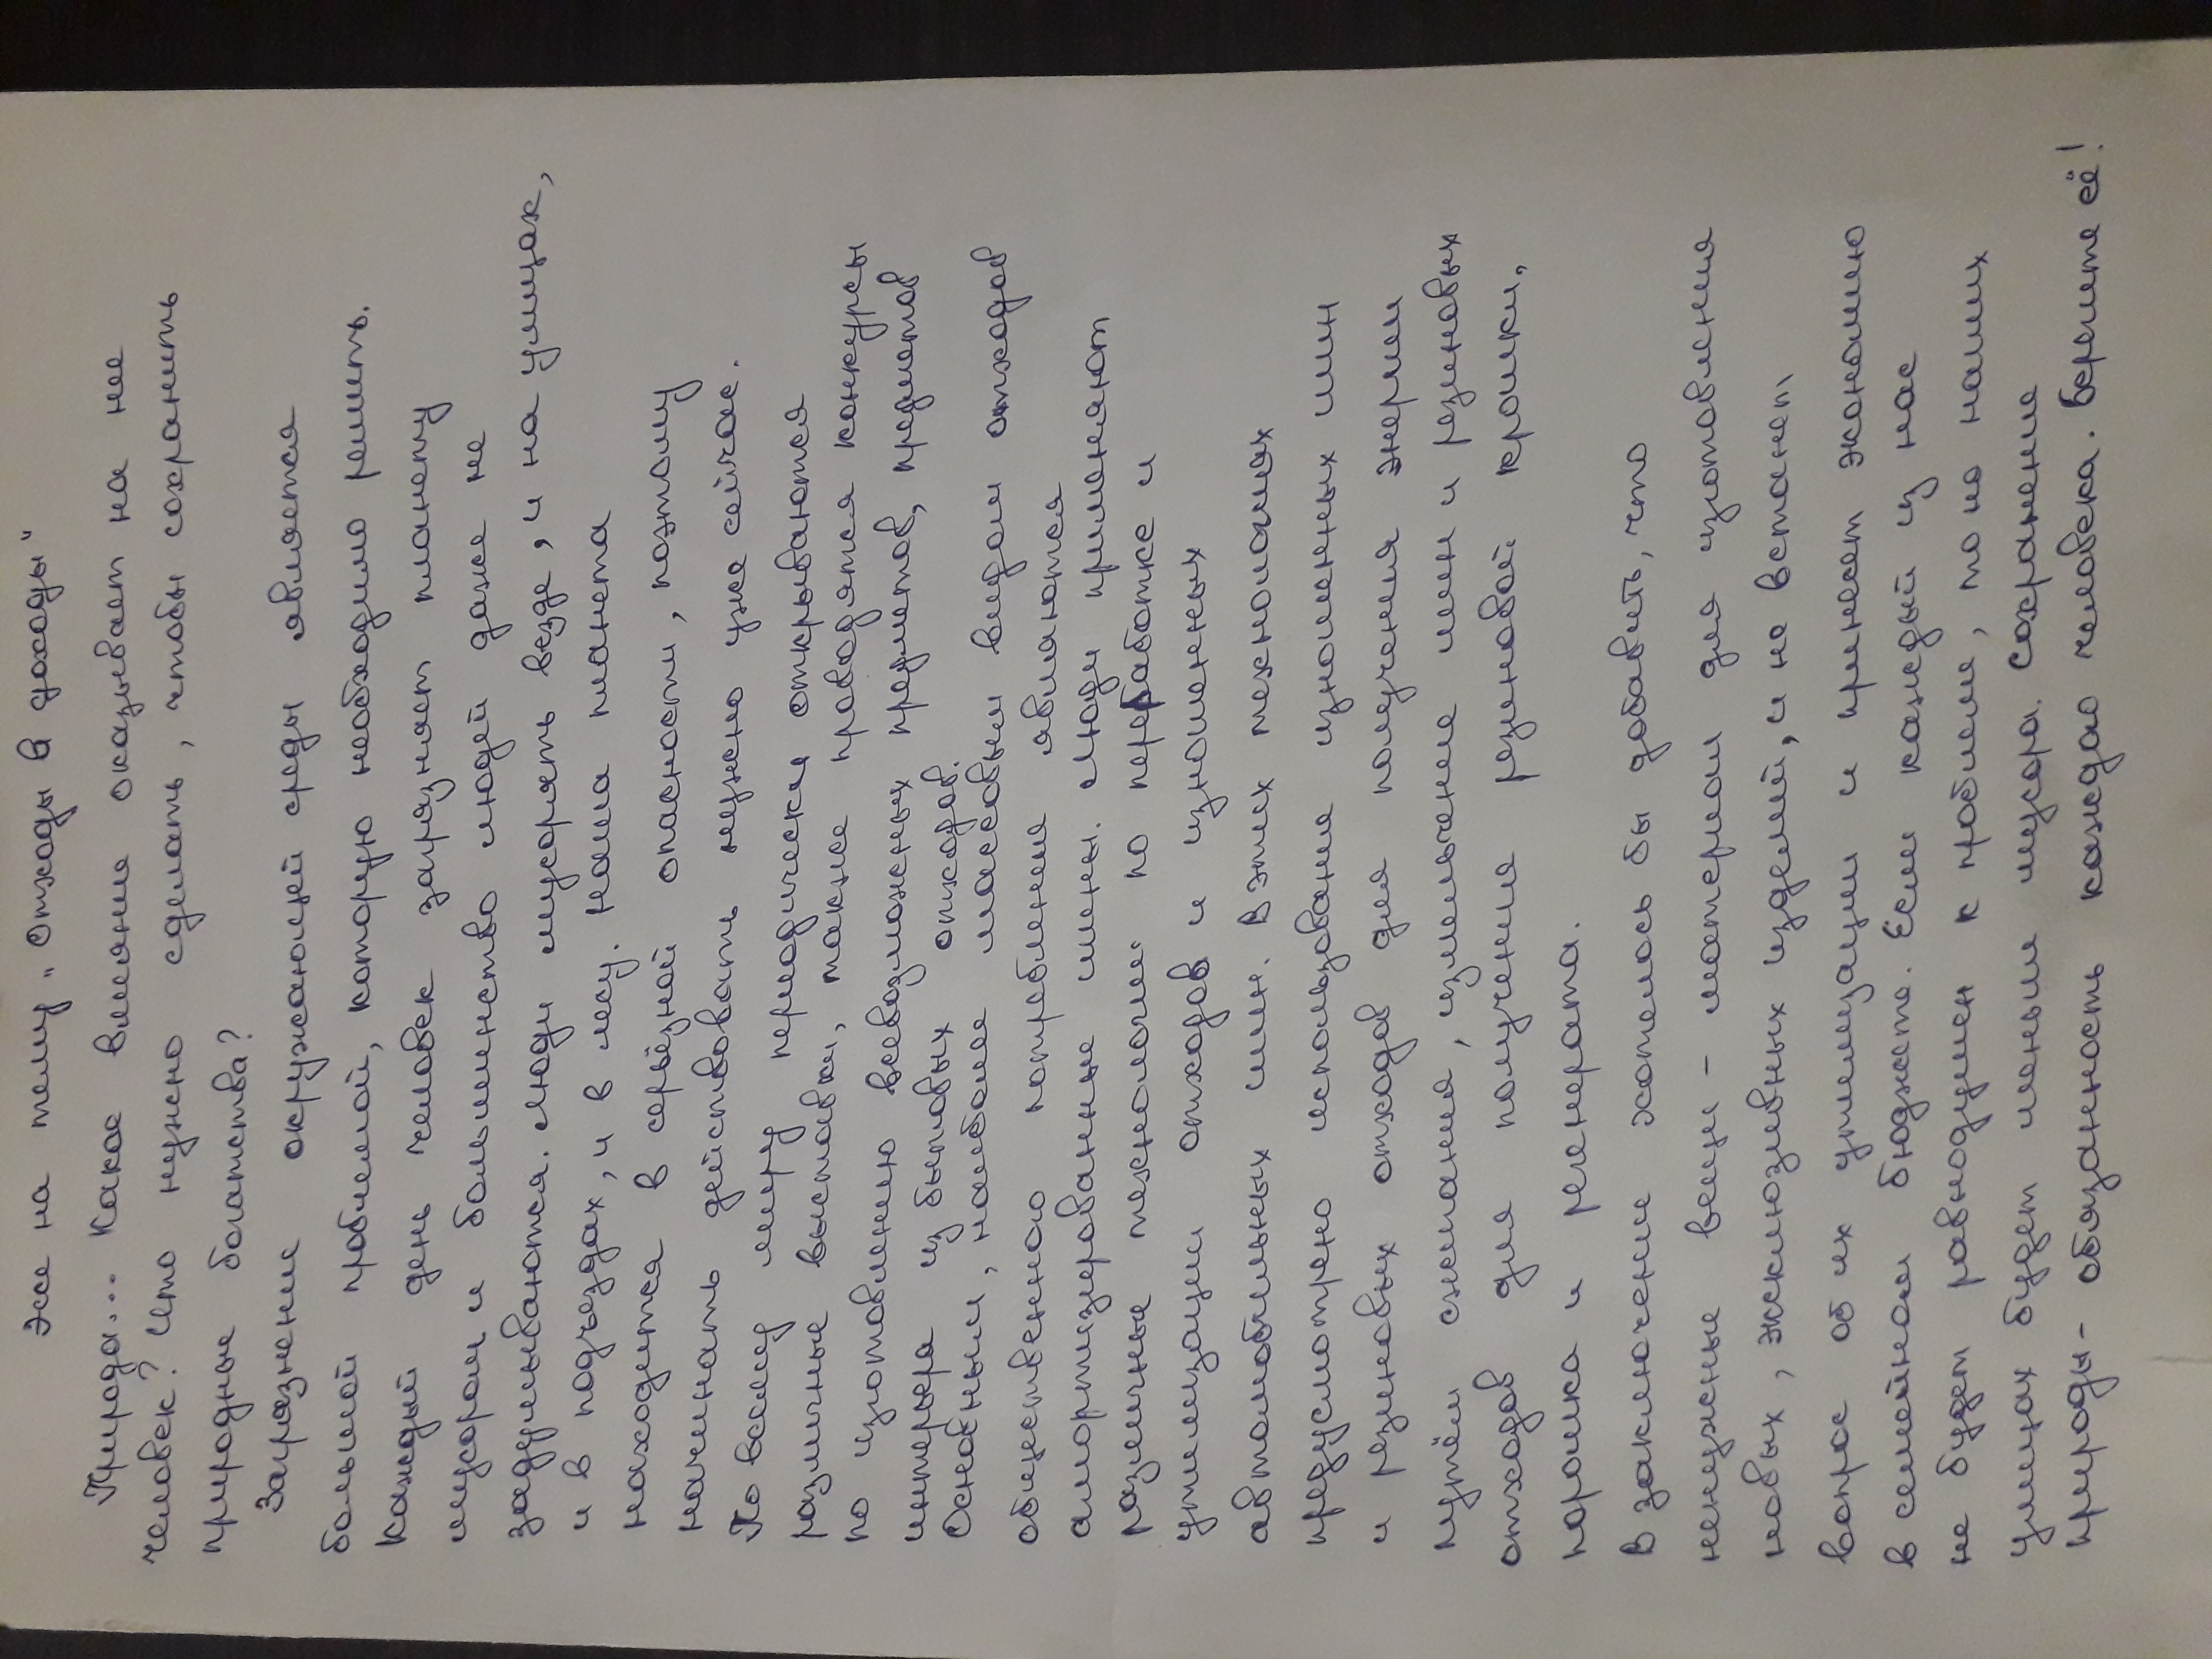 Эссе на тему „Отходы в доходы"
Природа... Какое влияние оказывает на нее
человек? Что нужно сделать, чтобы сохранить
природные богатства?
Загрязнение окружающей среды является
большой проблемой, которую необходимо решить.
Каждый день человек загрязняет планету
мусором и большинство людей даже не
задумываются. Люди мусорять везде, и на улицах,
и в подъездах, и в лесу. Наша планета
находится в серьёзной опасности, поэтому
начинать действовать нужно уже сейчас.
По всему миру периодически открываются
различные выставки, также проводятся конкурсы
по изготовлению всевозможных предметов, предметов
интерьера из бытовых отходов.
Основным, наиболее массовым видом отходов
общественного потребления являются
амортизированные шины. Люди применяют
различные технологии по переработке и
утилизации отходов и изношенных
автомобильных шин. В этих технологиях
предусмотрено использование изношенных шин
и резиновых отходов для получения энергии
путём сжигания, измельчение шин и резиновых
отходов для получение резиновой крошки,
порошка и регенерата.
В заключение хотелось бы добавить, что
ненужные вещи - материал для изготовления
новых, эксклюзивных изделий, и не встанет
вопрос об их утилизации и принесет экономию
в семейном бюджете. Если каждый из нас
не будет равнодушен к проблеме, то на наших
улицах будет меньше мусора. Сохранение
природы - обязанность каждого человека. Берегите её!